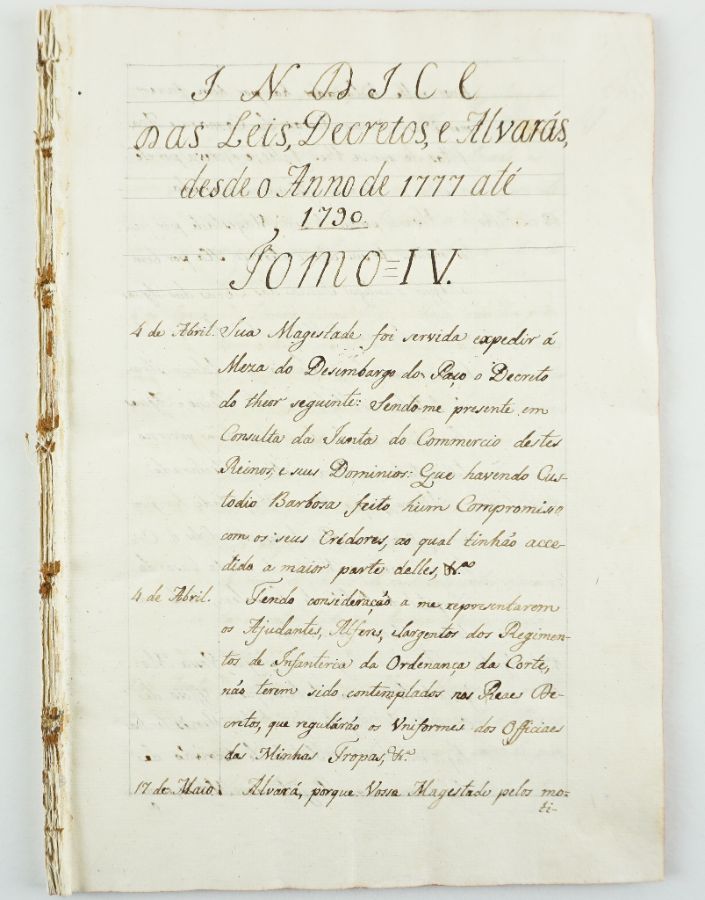 INDICE
Das Leis, Decretos, e Alvarás,
desde o Anno de 1777 até
1790.
Tomo = IV.
4 de Abril. Sua Magestade foi servida expedir á
Meza do Desimbargo do Paço o Decreto
do theor seguinte: Sendo-me presente em
Consulta da Junta do Commercio destes
Reinos, e sus Dominios: Que havendo Cus-
todio Barbosa feito hum Compromisso
com os seus Crédores, ao qual tinhão acce-
dido a maior parte delles, &.ª
4 de Abril. Tendo consideração a me representarem
os Ajudantes, Alferes, e Sargentos dos Regimen-
tos de Infanteria da Ordenança da Corte,
não terem sido contemplados nos Reae De-
cretos, que regulárão os Uniformes dos Officiaes
das Minhas Tropas, &.ª
17 de Maio. Alvará, porque Vossa Magestade pelos mo-
ti-